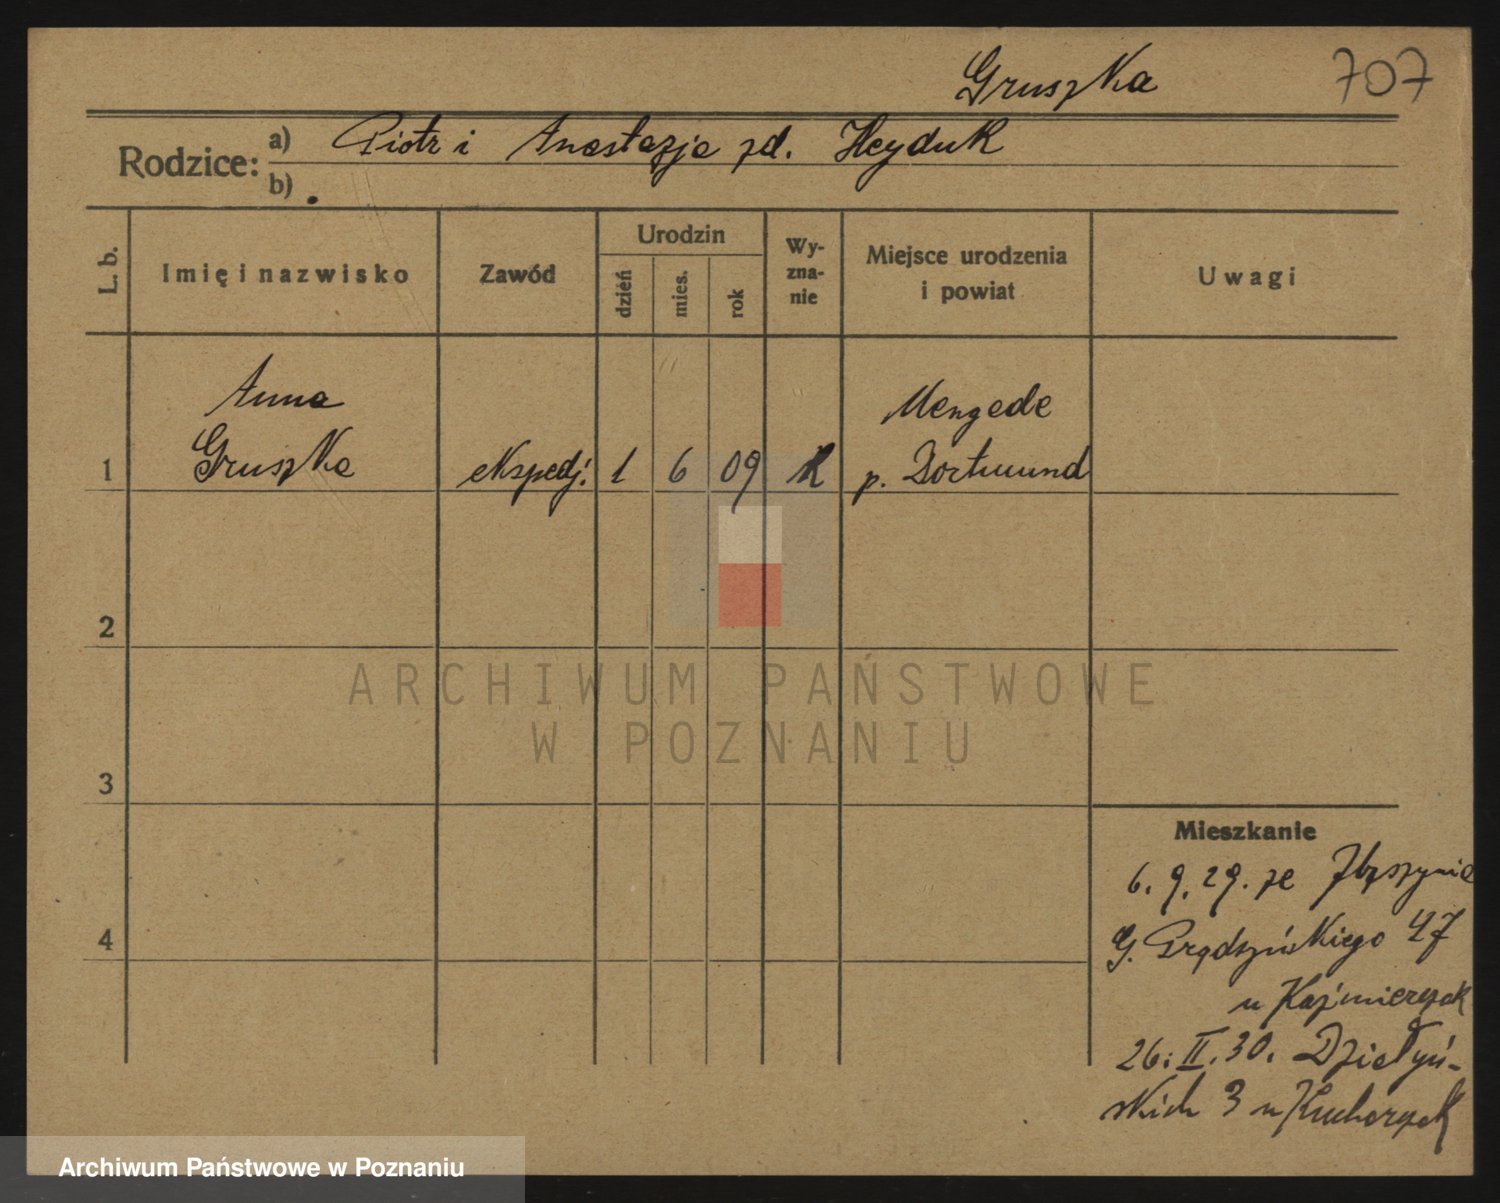 Gruszka 707
Rodzice: a) Piotr i Anastazja zd. Heyduk
b)
L. b. Imię i nazwisko Zawód Urodzin dzień mies. rok Wy-zna-nie Miejsce urodzenia i powiat Uwagi
Anna Mengede
1 Gruszka ekspedj. 1 6 09 k p. Dortmund
2
ARCHIWUM PAŃSTWOWE
W POZNANIU
3
Mieszkanie
6. 9. 29. ze Zbąszynia
4 G. Prądzyńskiego 47
u Kaźmierczak
26. II. 30. Działyń-
skich 3 u Kucharczak
Archiwum Państwowe w Poznaniu